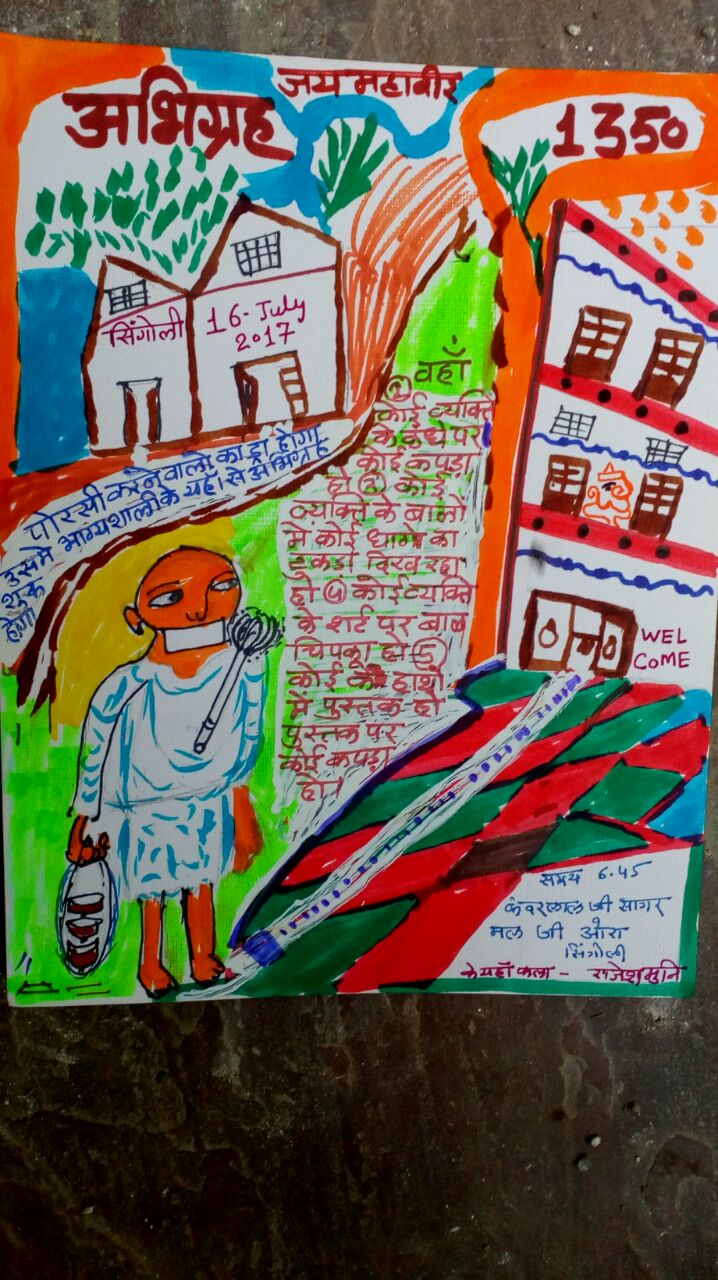 जय महावीर
अभिग्रह
1350
सिंगोली
16-July
2017
पोरसी करने वालो का ड्रा होगा
उसमे भाग्यशाली के यहाँ से अभिग्रह
शुरू
होगा
वहाँ
① कोई व्यक्ति
के कंधे पर
कोई कपड़ा
हो ② कोई
व्यक्ति के बालो
मे कोई धागे का
टुकडा दिख रहा
हो ④ कोई व्यक्ति
के शर्ट पर बाल
चिपका हो ⑤
कोई के हाथो
में पुस्तक हो
पुस्तक पर
कोई कपड़ा
हो।
WEL
COME
समय 6.45
कंवरलाल जी सागर
मल जी
सिंगोली
के यहाँ कला - राजेश मुनि